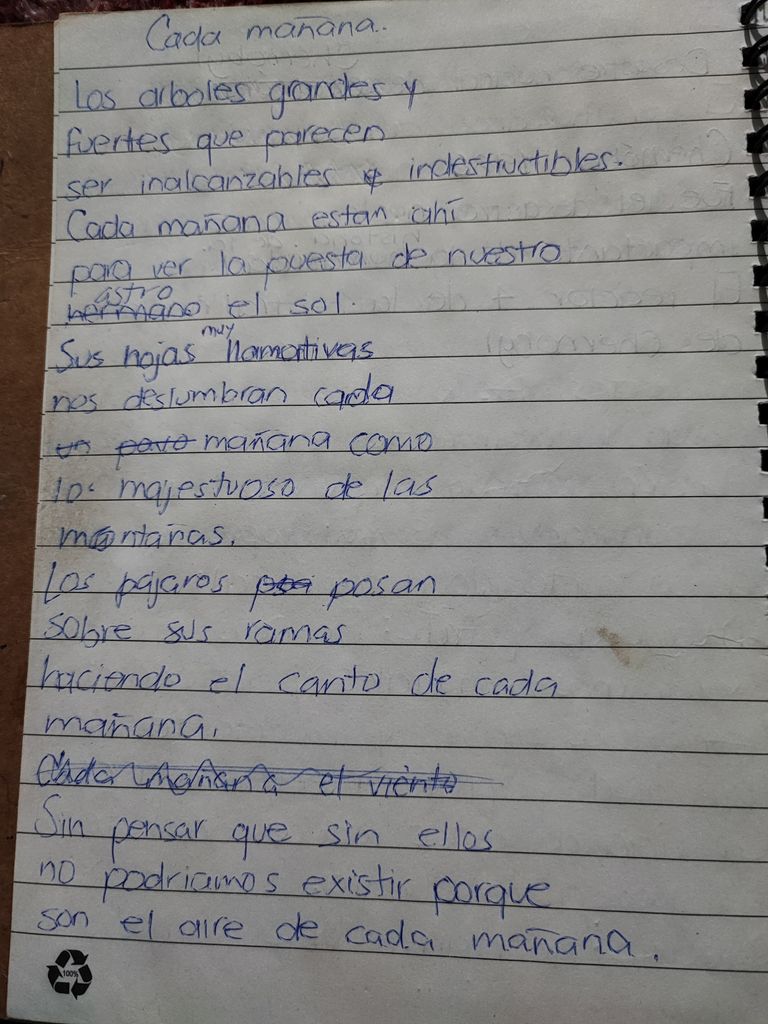 Cada mañana.
Los arboles grandes y
fuertes que parecen
ser inalcanzables e indestructibles.
Cada mañana estan ahí
para ver la puesta de nuestro
astro
hermano el sol.
muy
Sus hojas llamativas
nos deslumbran cada
un pavo mañana como
lo majestuoso de las
montañas.
Los pájaros posan
sobre sus ramas
haciendo el canto de cada
mañana.
Cada mañana el viento
Sin pensar que sin ellos
no podriamos existir porque
son el aire de cada mañana.
100%